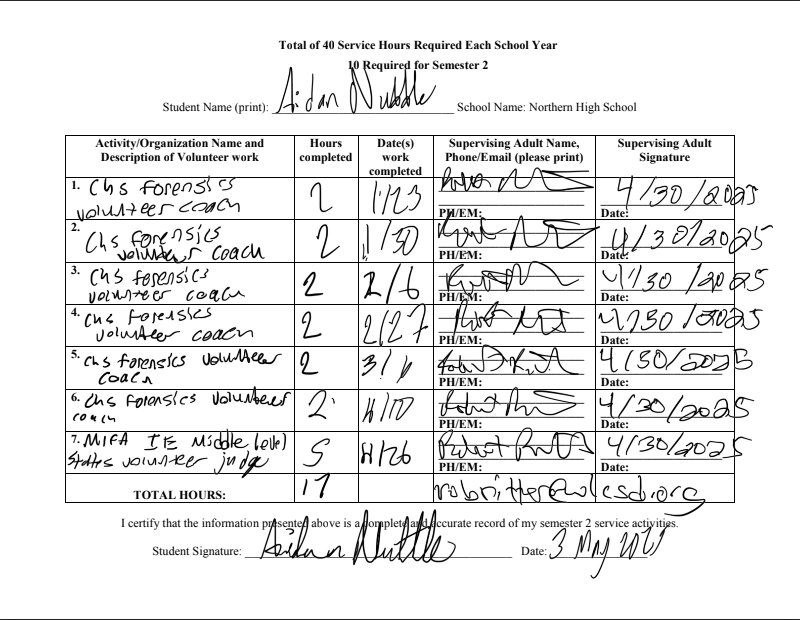 Total of 40 Service Hours Required Each School Year
10 Required for Semester 2
Student Name (print): Aidan Nuttle School Name: Northern High School
Activity/Organization Name and Description of Volunteer work
Hours completed
Date(s) work completed
Supervising Adult Name, Phone/Email (please print)
Supervising Adult Signature
1. Chs forensics
volunteer coach 2 1/23
PH/EM: Date: 4/30/2025
2. Chs forensics
volunteer coach 2 1/30
PH/EM: Date: 4/30/2025
3. Chs forensics
volunteer coach 2 2/6
PH/EM: Date: 4/30/2025
4. Chs forensics
volunteer coach 2 2/27
PH/EM: Date: 4/30/2025
5. Chs forensics volunteer
coach 2
PH/EM: Date: 4/30/2025
6. Chs forensics volunteer
coach 2 4/10
PH/EM: Robert Date: 4/30/2025
7. MIFA IE Middle level
States volunteer judge 5 4/26
PH/EM: Robert Date: 4/30/2025
TOTAL HOURS: 17
I certify that the information presented above is a complete and accurate record of my semester 2 service activities.
Student Signature: Aidan Nuttle Date: 3 May